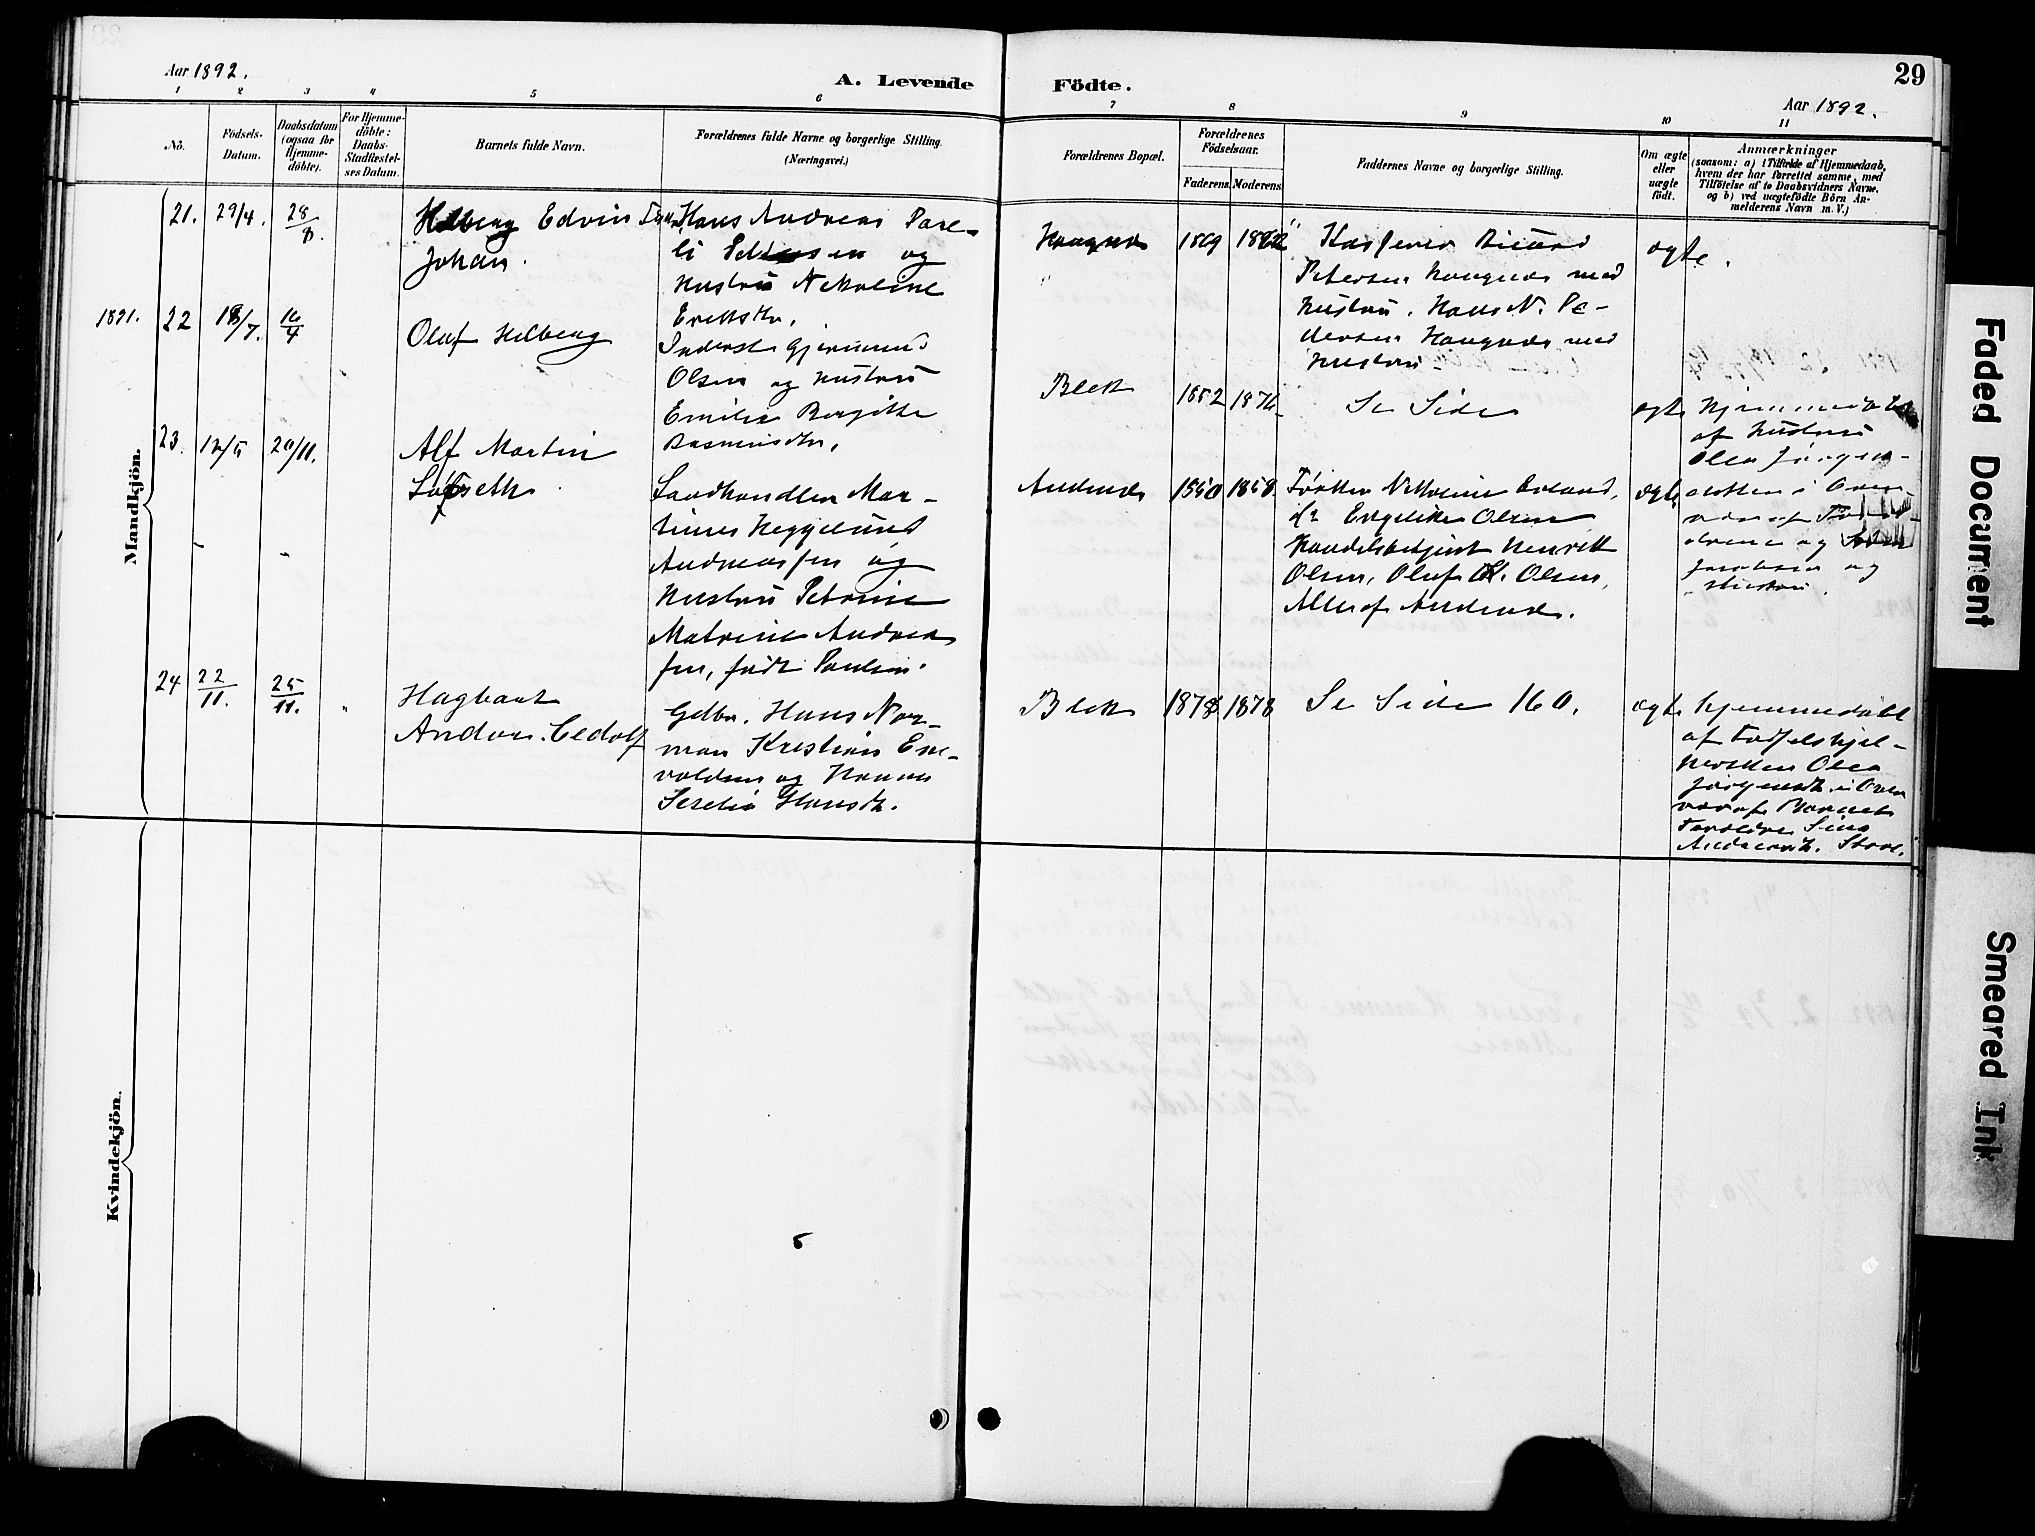 29
Aar 1892.
A. Levende Födte.
Aar 1892.
1 2 3 4 5 6 7 8 9 10 11
No.
Födsels-
Datum.
Daabsdatum
(ogsaa for
Hjemme-
döbte).
For Hjemme-
döbte:
Daabs-
Stadfæstel-
ses Datum.
Barnets fulde Navn.
Forældrenes fulde Navne og borgerlige Stilling.
(Næringsvei.)
Forældrenes Bopæl.
Forældrenes
Födselsaar.
Faderens.
Moderens.
Faddernes Navne og borgerlige Stilling.
Om ægte
eller
uægte
födt.
Anmærkninger
(saasom: a) i Tilfælde af Hjemmedaab,
hvem der har forrettet samme, med
Tilföielse af to Daabsvidners Navne.
og b) ved uægtefödte Börn An-
melderens Navn m. V.)
Mandkjön.
21. 29/4. 28/8.
Helberg Edvin
Johan.
Hans Andreas Pare-
li og
Hustru Nikoline
Eriksdtr.
Haugnes 1869
Petersen Haugnes med
Hustru. Hans N. Pe-
dersen Haugnes med
Hustru
ægte.
1891. 22 18/7. 16/4
Olaf Helberg
Inderst Gjermund
Olsen og Hustru
Emilie Bergitte
Rasmusdtr.
Blek 1852 1876
Se Side
ægte Hjemmedöbt
af Hustru
Olea Jörgen-
datter i Over-
vær af For-
ældrene og
Jacobsen og
Hustru.
23. 12/5 20/11.
Alf Martin
Sofseth
Landhandler Mar-
tinus Heggelund
Andreassen og
Hustru Petrine
Matrine Andrea
sen, födt Paulsen.
Andenes 1850 1858.
Fröken Nikoline
dr. Engelike Olsen
Handelsbetjent Henrik
Olsen, Oluf Olsen,
Alle af Andenes.
ægte
24 22/11. 25/11. "
Hagbart
Andor. Cedolf
Gdbr. Hans Nor-
man Kristian Ene-
voldsen og Hanna
Serelia Hansdtr.
Blek 1878 1878
Se Side 160.
ægte Hjemmedöbt
af Födselshjel-
persken Olea
Jörgensdtr. i Over
vær af Barnets
Forældre Sina
Andreasdtr. Stave.
Kvindekjön.
Faded Document
Smeared Ink